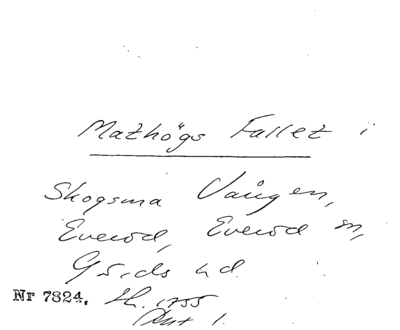 Mathögs Fallet i
Skogsma Vången,
Everöd, Everöd sn,
Gärds hd.
Nr 7824. Sk. 1755
Akt 1.